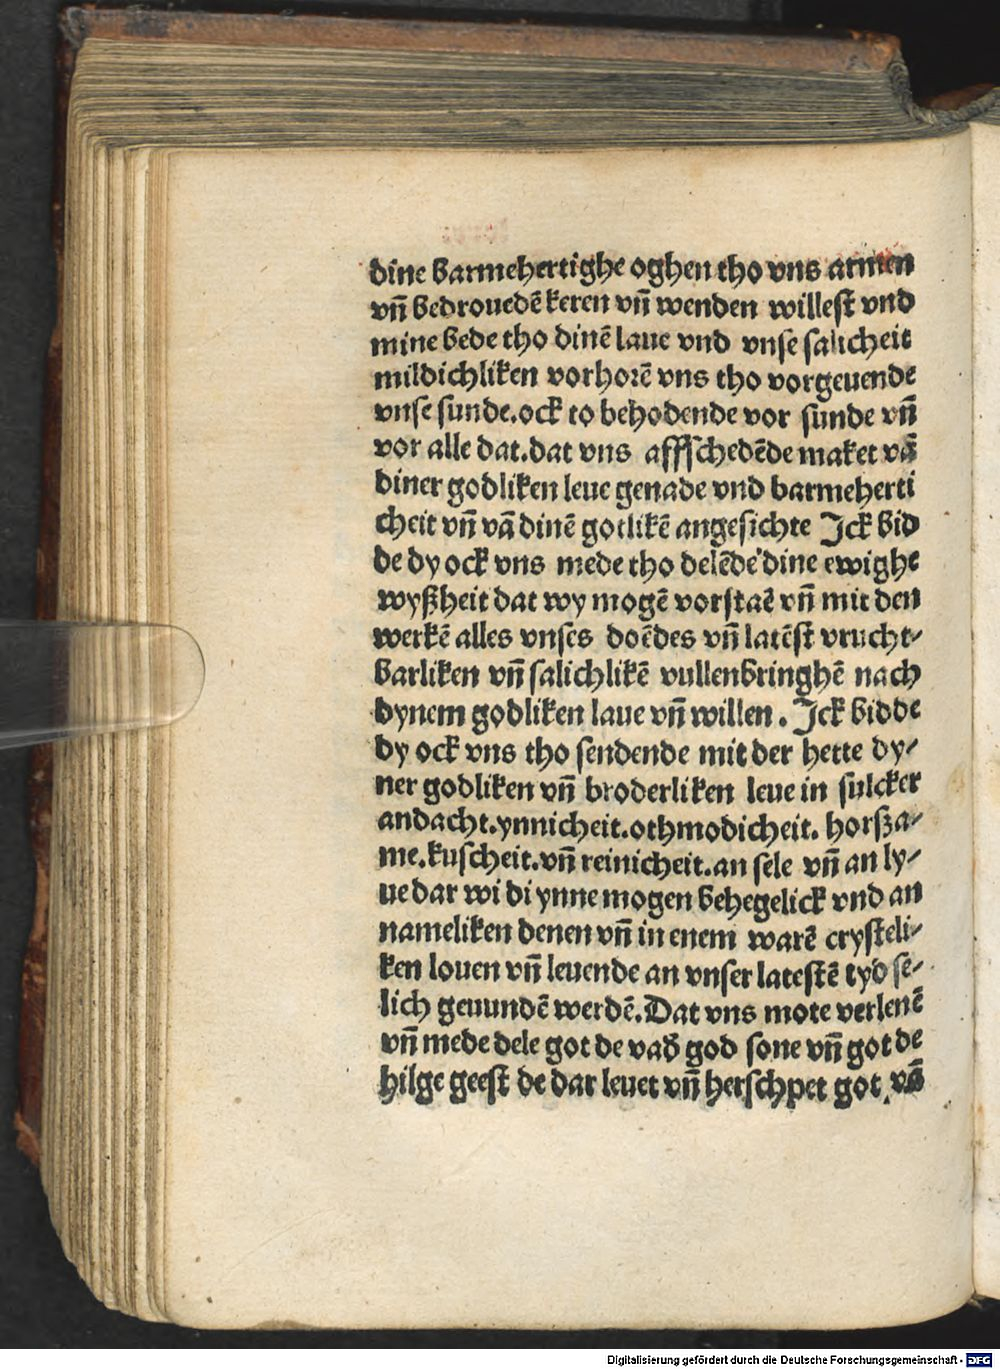 dine barmehertighe oghen tho vns armen
vn̄ bedrouedē keren vn̄ wenden willest vnd
mine bede tho dinē laue vnd vnse salicheit
mildichliken vorhorē vns tho vorgeuende
vnse sunde.ock to behodende vor sunde vn̄
vor alle dat.dat vns affschedēde maket vā
diner godliken leue genade vnd barmeherti
cheit vn̄ vā dinē gotlikē angesichte Ick bid
de dy ock vns mede tho delēde dine ewighe
wyßheit dat wy mogē vorstaē vn̄ mit den
werkē alles vnses doēdes vn̄ latēst vrucht⸗
barliken vn̄ salichlikē vullenbringhē nach
dynem godliken laue vn̄ willen. Ick bidde
dy ock vns tho sendende mit der hette dy⸗
ner godliken vn̄ broderliken leue in sulcker
andacht.ynnicheit.othmodicheit. horsza⸗
me.kuscheit.vn̄ reinicheit.an sele vn̄ an ly⸗
ue dar wi di ynne mogen behegelick vnd an
nameliken denen vn̄ in enem warē crysteli⸗
ken louen vn̄ leuende an vnser latestē tyd se⸗
lich geuundē werdē.Dat vns mote verlenē
vn̄ mede dele got de vad̓ god sone vn̄ got de
hilge geest de dar leuet vn̄ herschpet got vā
Digitalisierung gefördert durch die Deutsche Forschungsgemeinschaft - DFG